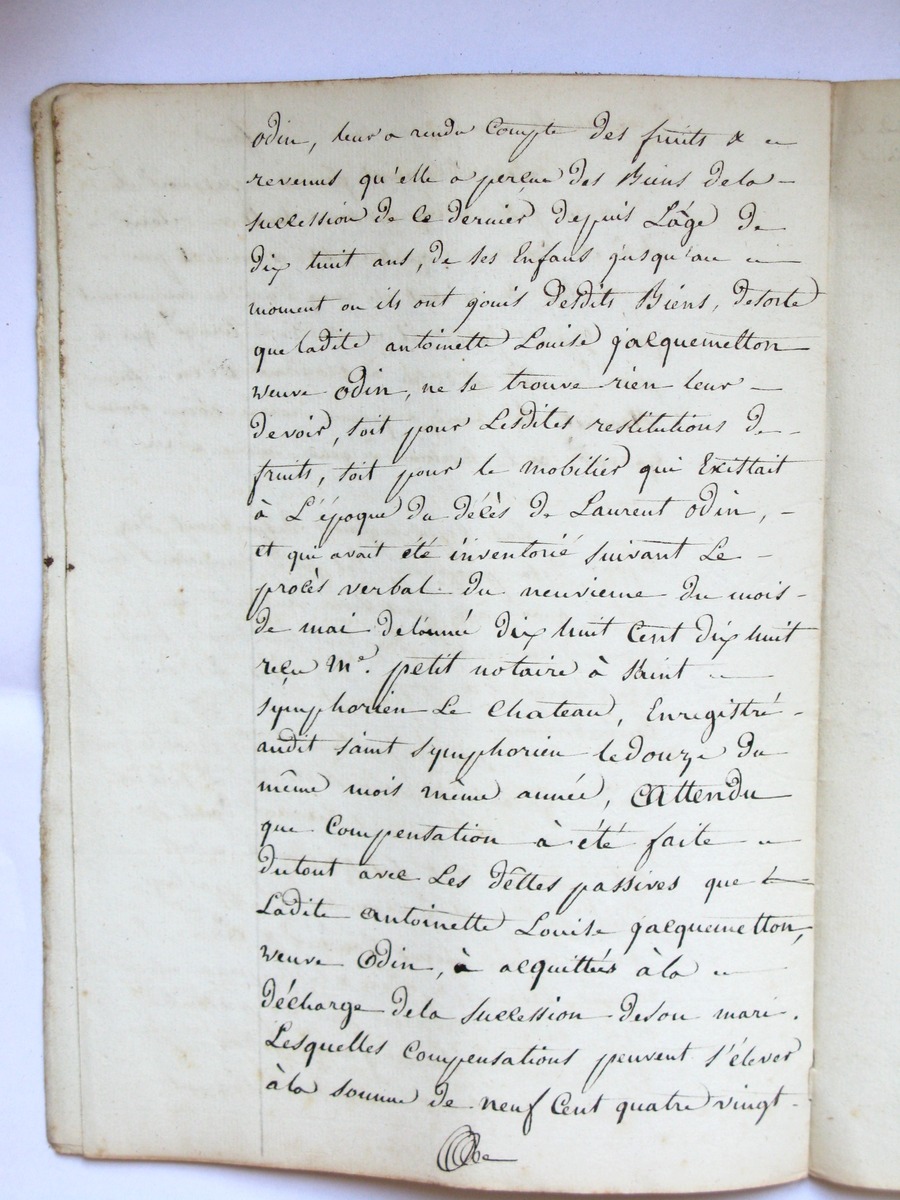 odin, leur a rendu Compte des fruits &
revenus qu'elle à perçue des Biens dela
succession de ce dernier depuis L'âge de
dix huit ans, de ses Enfans jusqu'au
moment ou ils ont jouis desdits Biens, desorte
que ladite antoinette Louise jacquemetton
veuve odin, ne se trouve rien leur
devoir, soit pour Lesdites restitutions de
fruits, soit pour le mobilier qui Existait
à L'époque du décès de Laurent odin,
et qui avait été inventorié suivant Le
procès verbal du neuvieme du mois
de mai delànnée dix huit Cent dix huit
reçu Me. petit notaire à Saint
symphorien Le Chateau, Enregistré
audit saint symphorien ledouze du
même mois même année, Attendu
que Compensation à été faite
dutout avec Les dêttes passives que
Ladite antoinette Louise jacquemetton,
veuve Odin, à acquittées àla
décharge dela succession deson mari.
Lesquelles Compensations peuvent s'élever
àla somme de neuf Cent quatre vingt